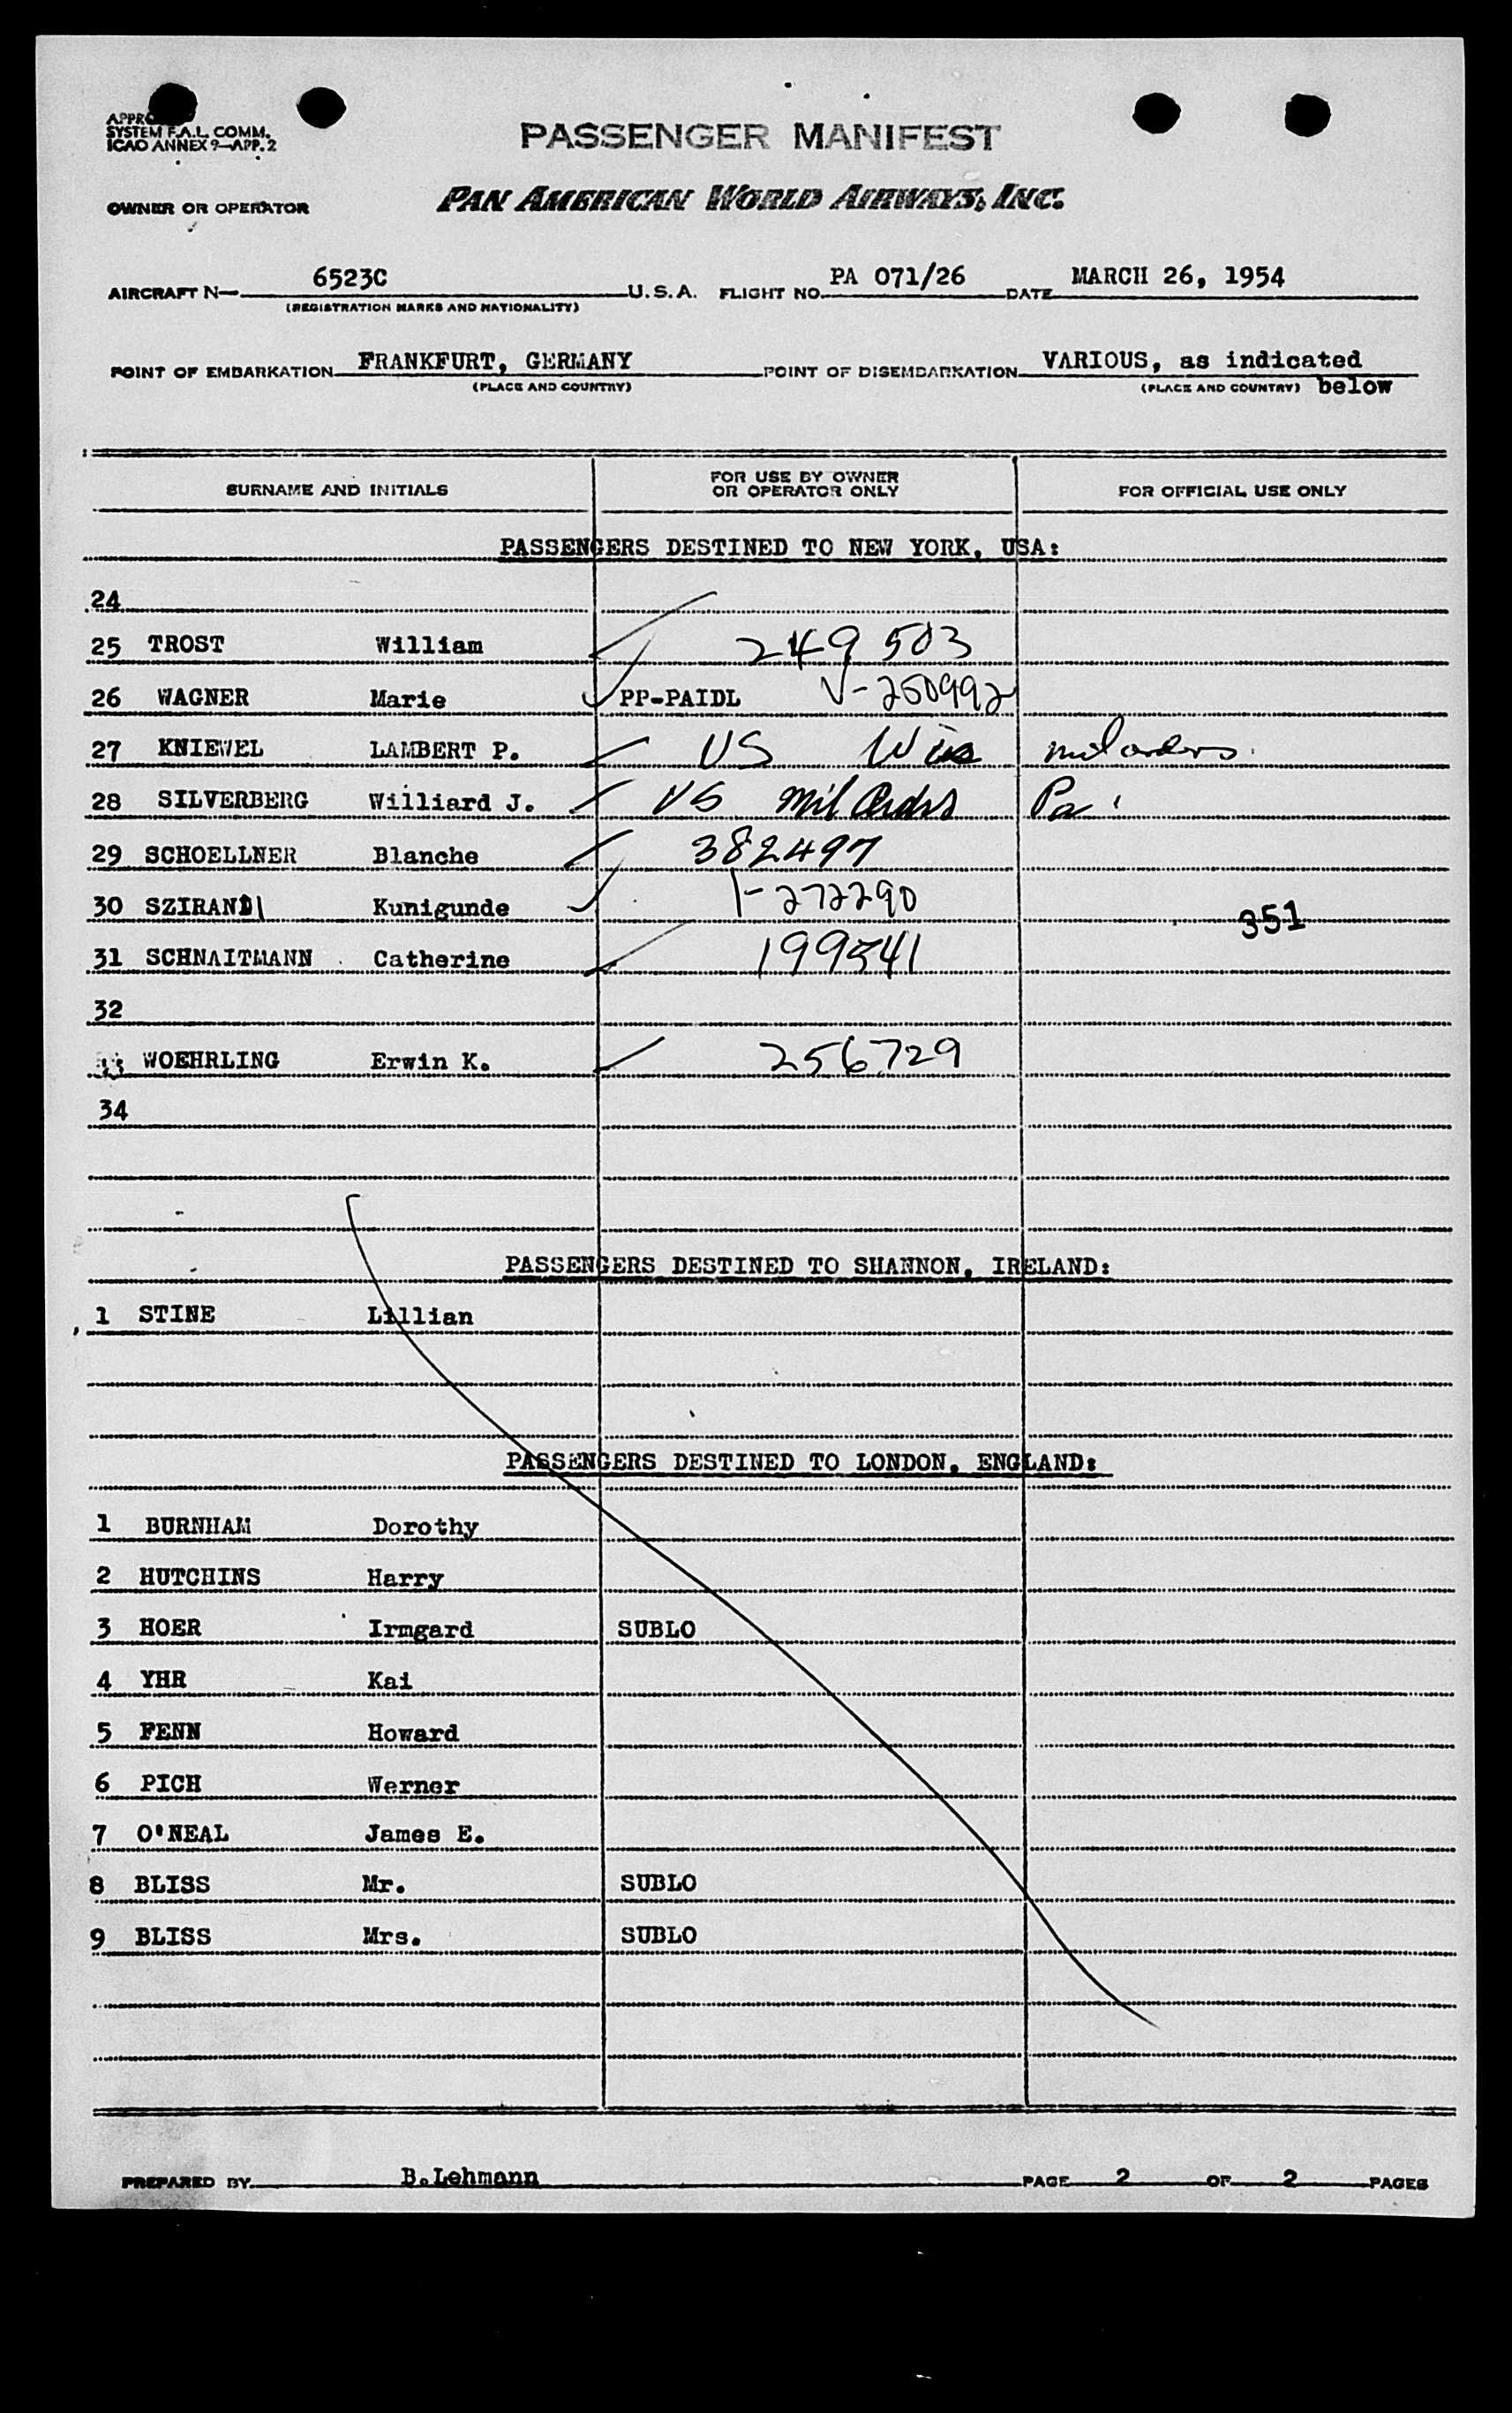 SYSTEM F.A.L. COMM.
ICAO ANNEX 9—APP. 2
PASSENGER MANIFEST
OWNER OR OPERATOR PAN AMERICAN WORLD AIRWAYS, INC.
AIRCRAFT N— 6523C U.S.A. FLIGHT NO. PA 071/26 DATE MARCH 26, 1954
(REGISTRATION MARKS AND NATIONALITY)
POINT OF EMBARKATION FRANKFURT, GERMANY POINT OF DISEMBARKATION VARIOUS, as indicated
(PLACE AND COUNTRY) (PLACE AND COUNTRY) below
SURNAME AND INITIALS FOR USE BY OWNER OR OPERATOR ONLY FOR OFFICIAL USE ONLY
PASSENGERS DESTINED TO NEW YORK, USA:
24
25 TROST William 249503
26 WAGNER Marie PP-PAIDL V-250992
27 KNIEWEL LAMBERT P. US Wis mil orders
28 SILVERBERG Williard J. US mil Orders Pa
29 SCHOELLNER Blanche 382497
30 SZIRANDI Kunigunde 1-272290
351
31 SCHNAITMANN Catherine 199541
32
33 WOEHRLING Erwin K. 256729
34
PASSENGERS DESTINED TO SHANNON, IRELAND:
1 STINE Lillian
PASSENGERS DESTINED TO LONDON, ENGLAND:
1 BURNHAM Dorothy
2 HUTCHINS Harry
3 HOER Irmgard SUBLO
4 YHR Kai
5 FENN Howard
6 PICH Werner
7 O'NEAL James E.
8 BLISS Mr. SUBLO
9 BLISS Mrs. SUBLO
PREPARED BY B.Lehmann PAGE 2 OF 2 PAGES